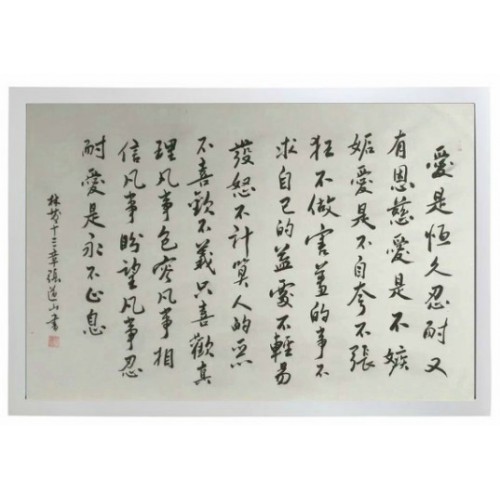 愛是恒久忍耐又
有恩慈愛是不嫉
妬愛是不自夸不張
狂不做害羞的事不
求自己的益處不輕易
發怒不計算人的惡
不喜歡不義只喜歡真
理凡事包容凡事相
信凡事盼望凡事忍
耐愛是永不止息
林茂十三章張道山書